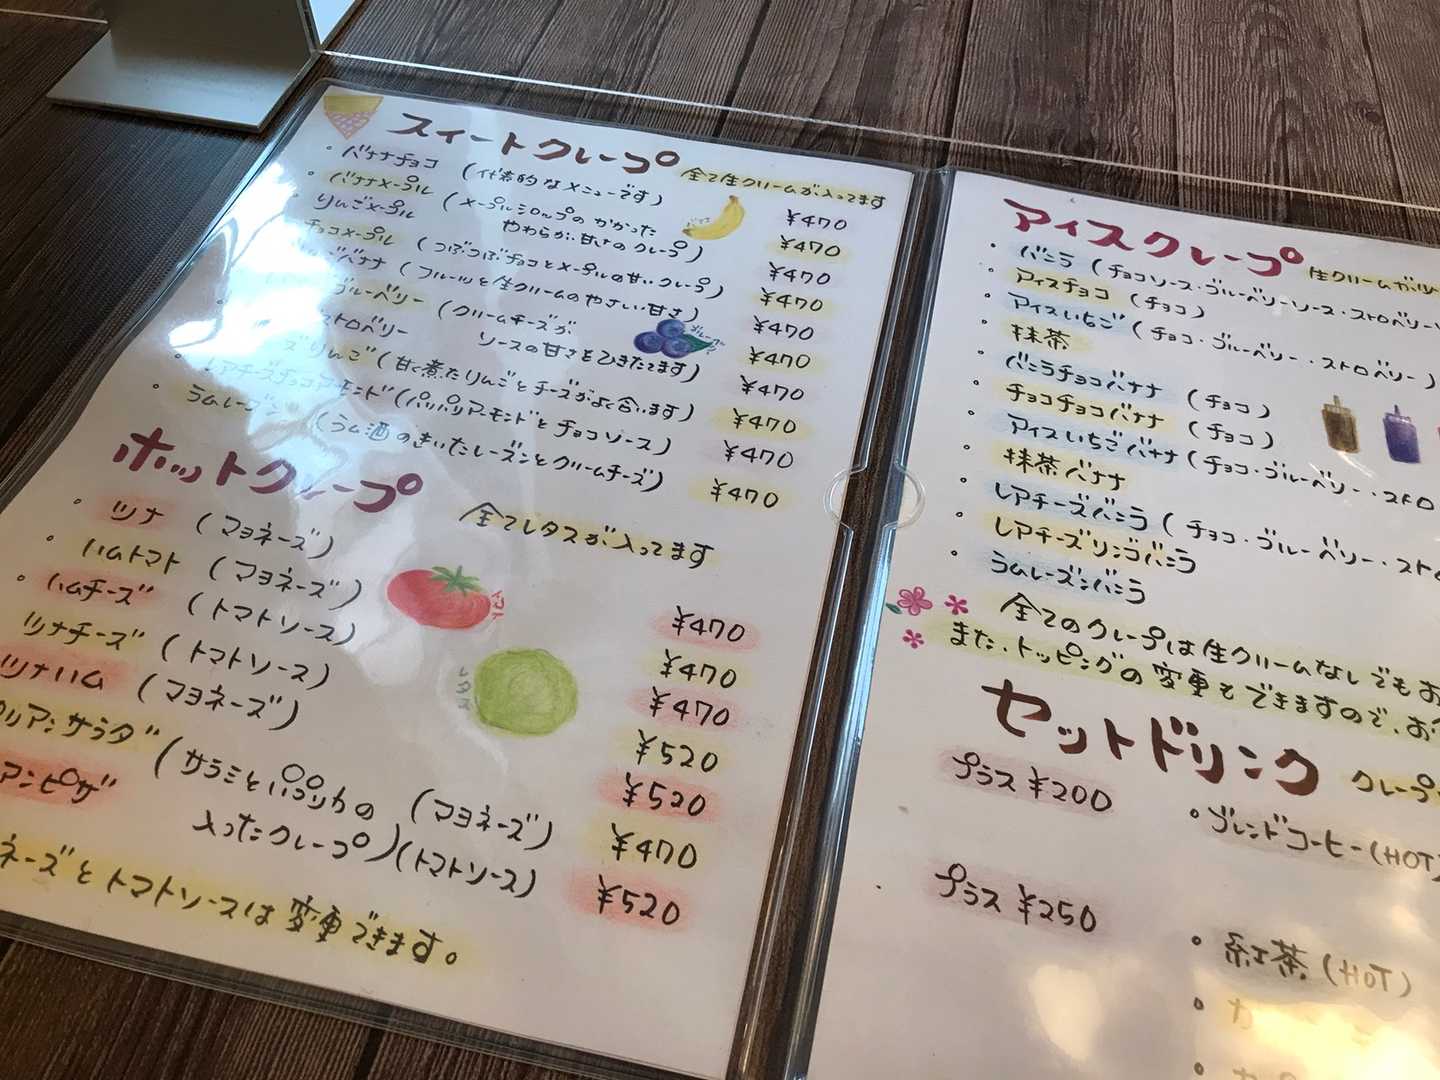 スイートクレープ
全て生クリームが入ってます
・バナナチョコ (代表的なメニューです) ¥470
・バナナメープル ¥470
・りんごメープル (メープルシロップのかかった やわらかい甘さのクレープ) ¥470
チョコメープル (つぶつぶチョコとメープルの甘いクレープ) ¥470
バナナ (フルーツと生クリームのやさしい甘さ) ¥470
ブルーベリー (クリームチーズが ¥470
ストロベリー ソースの甘さをひきたてます) ¥470
ズりんご (甘く煮たりんごとチーズがよく合います) ¥470
・レアチーズチョコアーモンド (パリパリアーモンドとチョコソース) ¥470
・ラムレーズン (ラム酒のきいたレーズンとクリームチーズ) ¥470
バナナ
ブルーベリー
ホットクレープ
全てレタスが入ってます
・ツナ (マヨネーズ) ¥470
・ハムトマト (マヨネーズ) ¥470
・ハムチーズ (トマトソース) ¥470
ツナチーズ (トマトソース) ¥520
ツナハム (マヨネーズ) ¥520
リアンサラダ (サラミとパプリカの 入ったクレープ) (マヨネーズ) ¥470
アンピザ (トマトソース) ¥520
トマト
レタス
ネーズとトマトソースは変更できます。
アイスクレープ
生クリームが
・バニラ (チョコソース・ブルーベリーソース・ストロベリー
・アイスチョコ (チョコ)
・アイスいちご (チョコ・ブルーベリー・ストロベリー)
・抹茶
・バニラチョコバナナ (チョコ)
・チョコチョコバナナ (チョコ)
・アイスいちごバナナ (チョコ・ブルーベリー・ストロ
・抹茶バナナ
・レアチーズバニラ (チョコ・ブルーベリー・スト
・レアチーズリンゴバニラ
・ラムレーズンバニラ
全てのクレープは生クリームなしでもお
また、トッピングの変更もできますので、お
セットドリンク
クレープ
プラス ¥200
・ブレンドコーヒー(HOT)
プラス ¥250
・紅茶(HOT)